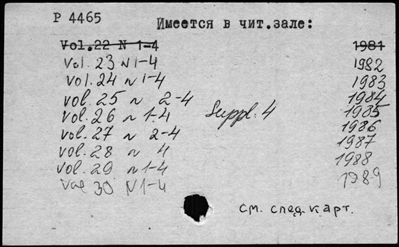 P 4465
Имеется в чит.зале:
Vol.22 N 1-4 1981
Vol. 23 N 1-4 1982
Vol. 24 N 1-4 1983
vol. 25 N 2-4 1984
vol. 26 N 1-4 Suppl. 4 1985
vol. 27 N 2-4 1986
vol. 28 N 4 1987
vol. 29 N 1-4 1988
Vol 30 N 1-4 1989
см. спец. карт.